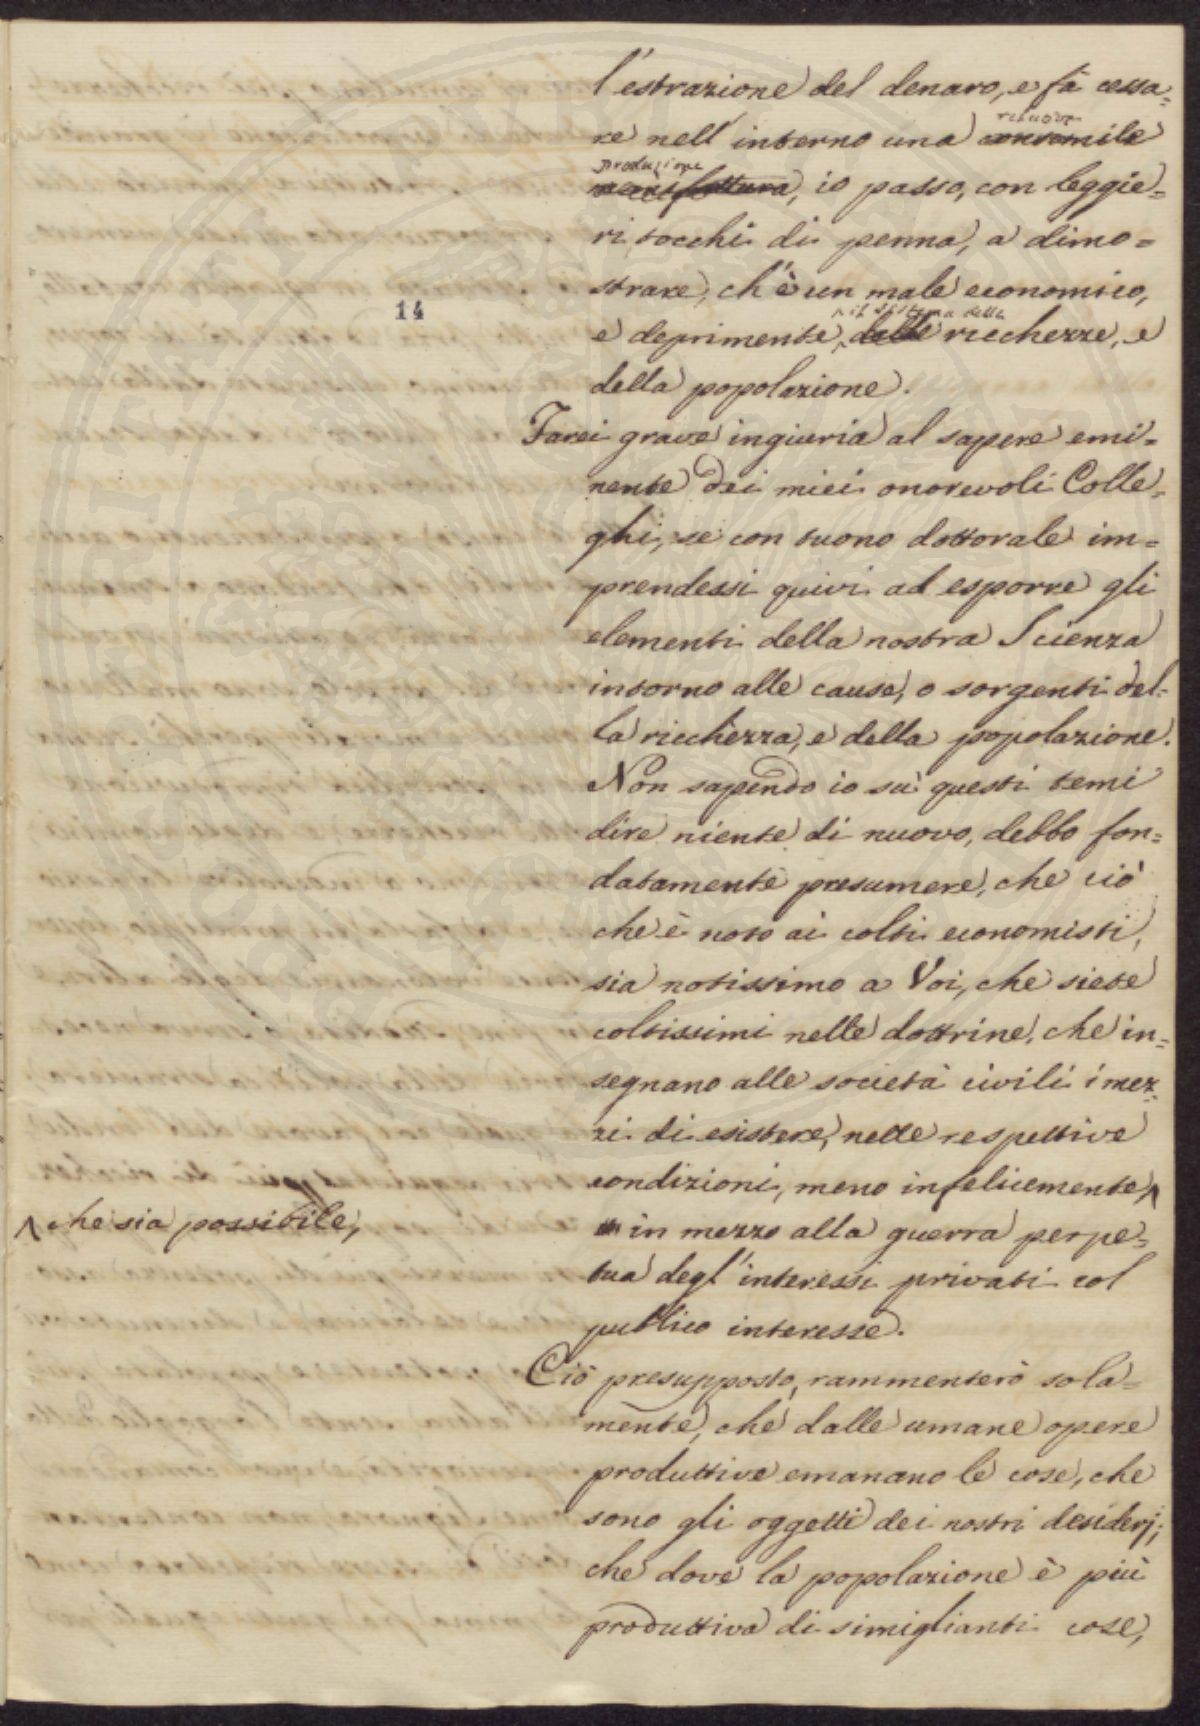 l'estrazione del denaro, e fà cessa=
re nell'interno una consimile
produzione
manifattura, io passo, con leggie=
ri tocchi di penna, a dimo=
strare, ch'è un male economico,
14
il sistema della
e deprimente delle ricchezze, e
della popolazione.
Farei grave ingiuria al sapere emi=
nente dei miei onorevoli Colle=
ghi, se con tuono dottorale im=
prendessi quivi ad esporre gli
elementi della nostra Scienza
intorno alle cause, o sorgenti del=
la ricchezza, e della popolazione.
Non sapendo io sù questi temi
dire niente di nuovo, debbo fon=
datamente presumere, che ciò
che è noto ai colti economisti,
sia notissimo a Voi, che siete
coltissimi nelle dottrine, che in=
segnano alle società civili i mez=
zi di esistere, nelle respettive
condizioni, meno infelicemente
che sia possibile,
in mezzo alla guerra perpe=
tua degl'interessi privati col
publico interesse.
Ciò presupposto, rammenterò sola=
mente, che dalle umane opere
produttive emanano le cose, che
sono gli oggetti dei nostri desiderj;
che dove la popolazione è più
produttiva di simiglianti cose,